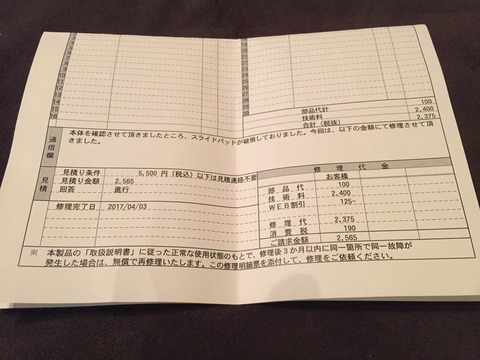 部品代計 100
技術料 2,400
合計(税抜) 2,375
通信欄
本体を確認させて頂きましたところ、スライドパッドが破損しておりました。今回は、以下の金額にて修理させて頂
きました。
見積
見積り条件 5,500 円(税込)以下は見積連絡不要
見積り金額 2,565
回答 進行
修理完了日 2017/04/03
修理代金
お客様
部品代 100
技術料 2,400
WEB割引 125-
修理代 2,375
消費税 190
ご請求金額 2,565
※ 本製品の「取扱説明書」に従った正常な使用状態のもとで、修理後3か月以内に同一箇所で同一故障が
発生した場合は、無償で再修理いたします。この修理明細票を添付して、修理をご依頼ください。